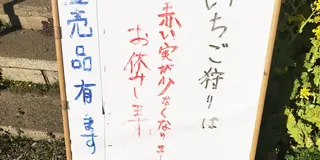 いちご狩りは
赤い実が少なくなりま
お休みします
売品有ます